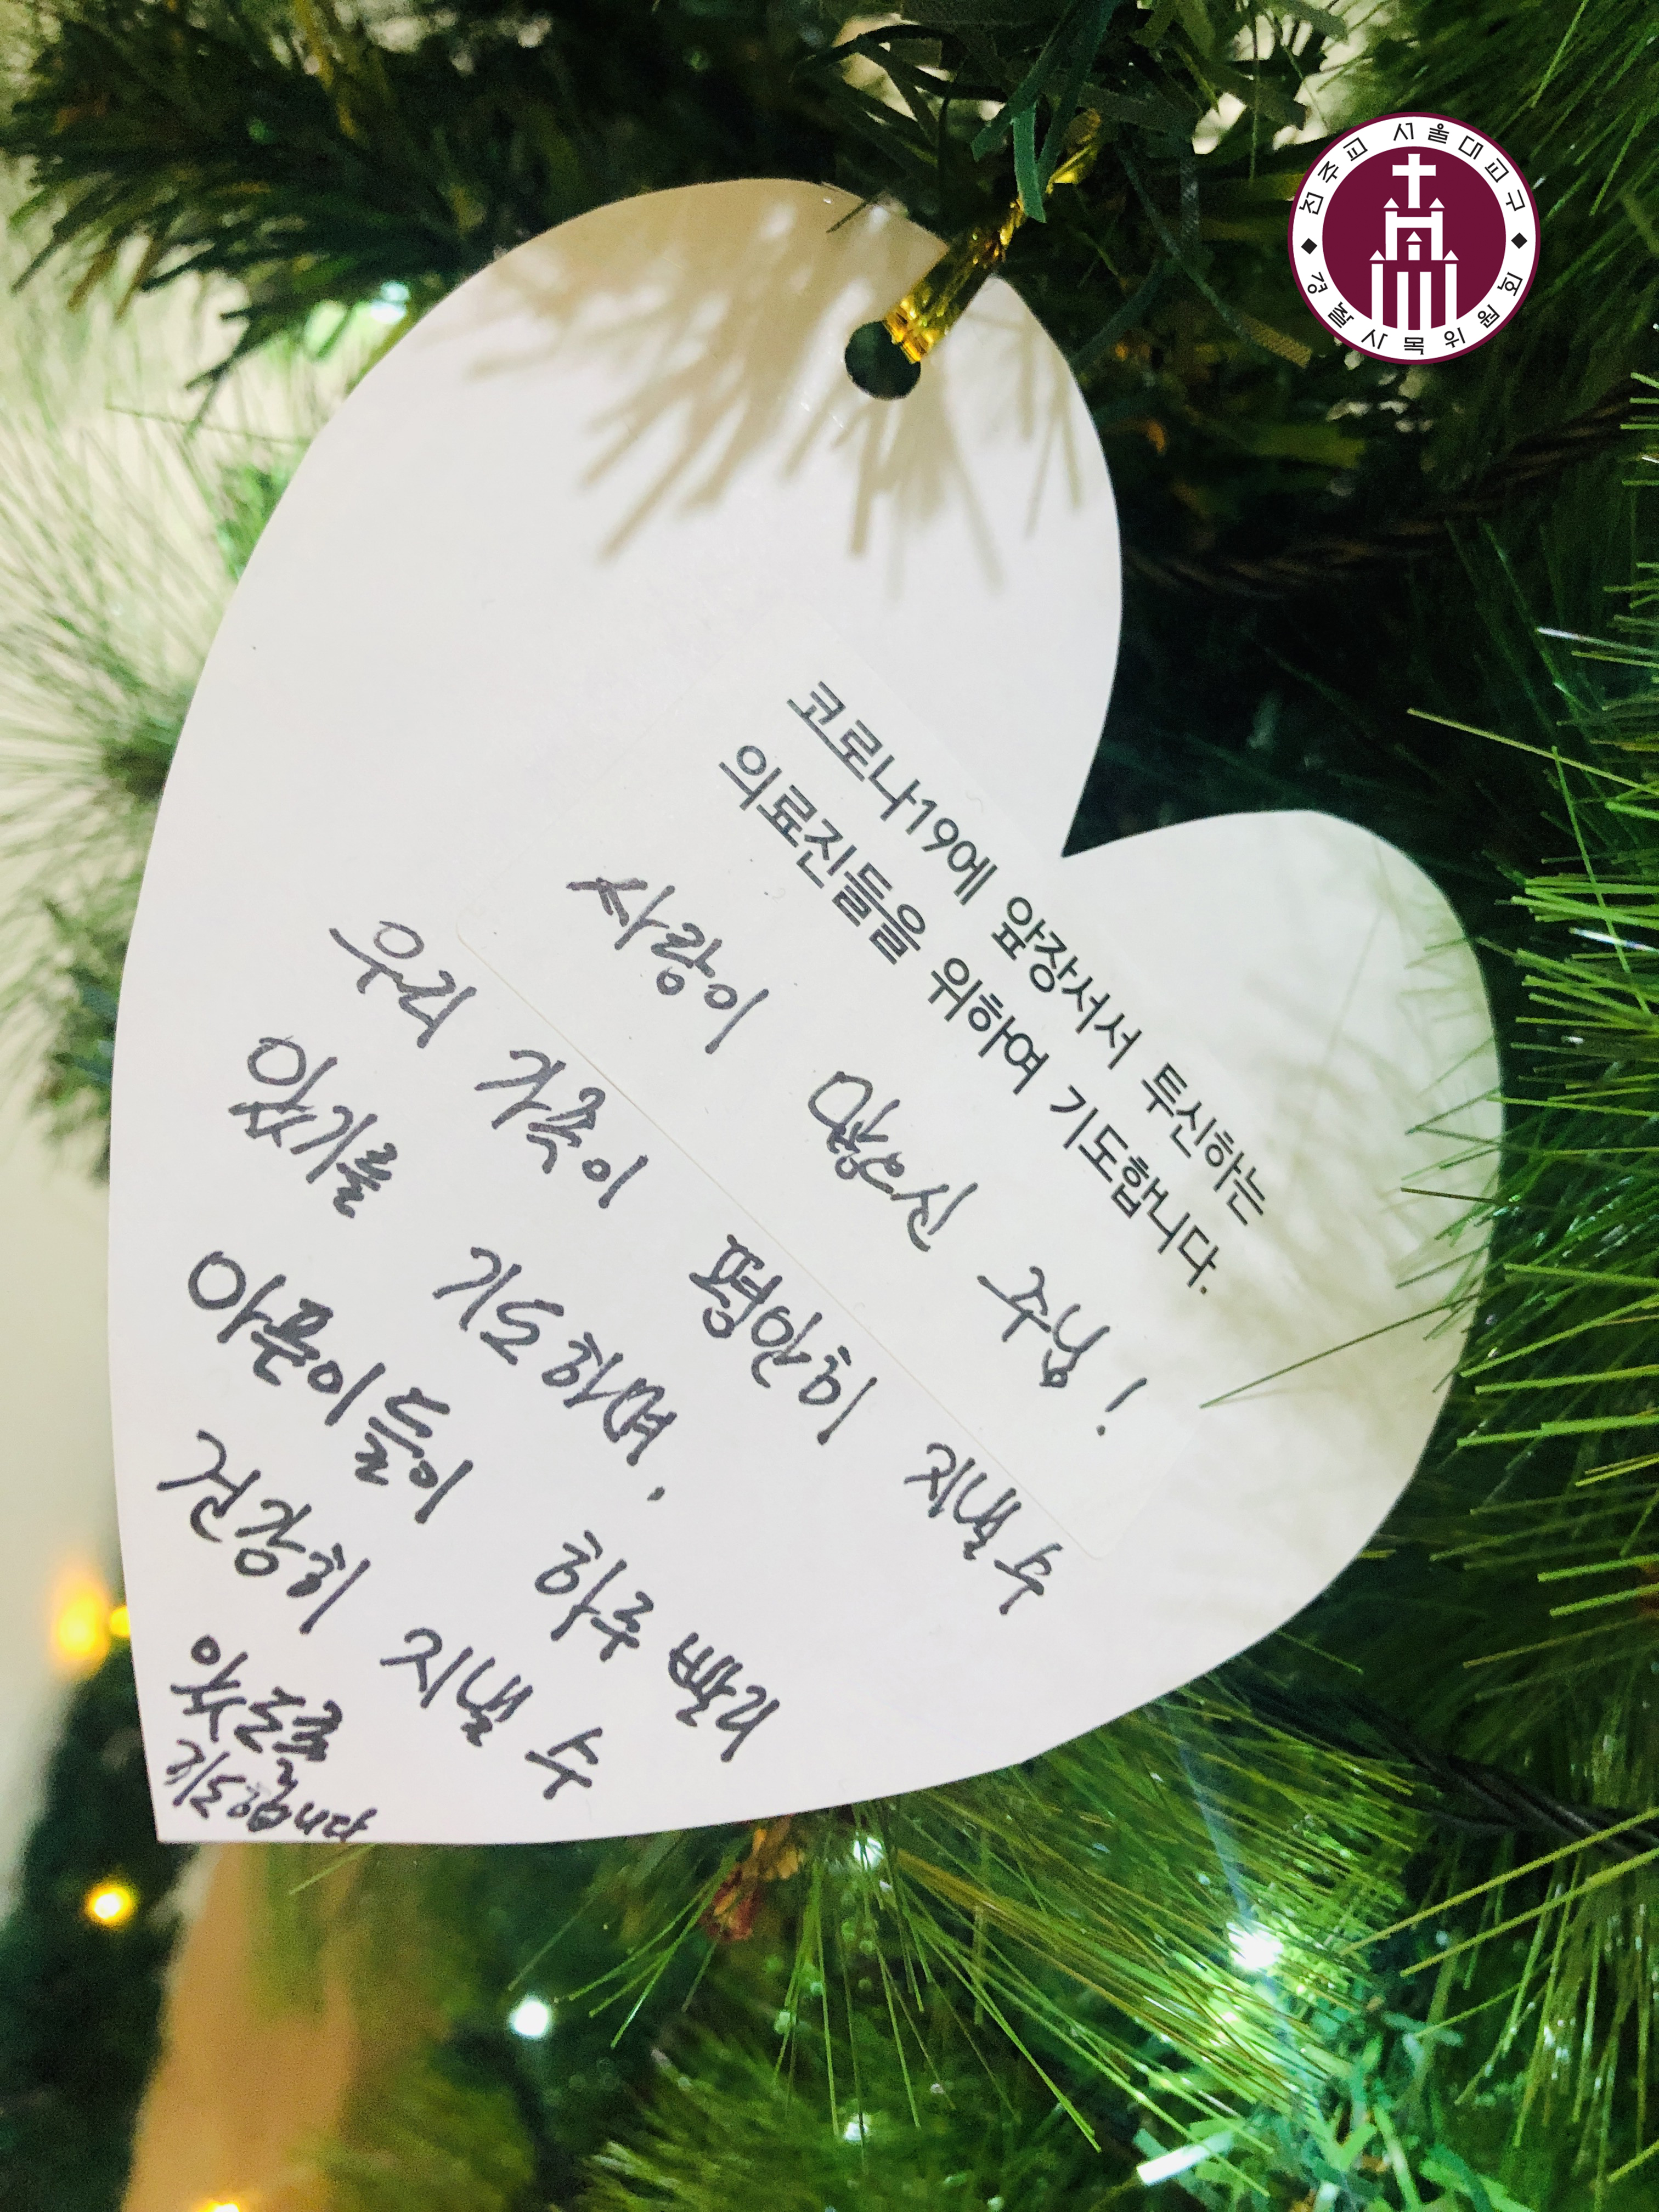 천주교 서울대교구
경찰사목위원회
코로나19에 앞장서서 투신하는
의료진들을 위하여 기도합니다.
사랑이 많으신 주님!
우리 가족이 평안히 지낼 수
있기를 기도하며.
아픈이들이 하루 빨리
건강히 지낼 수
있도록
기도합니다